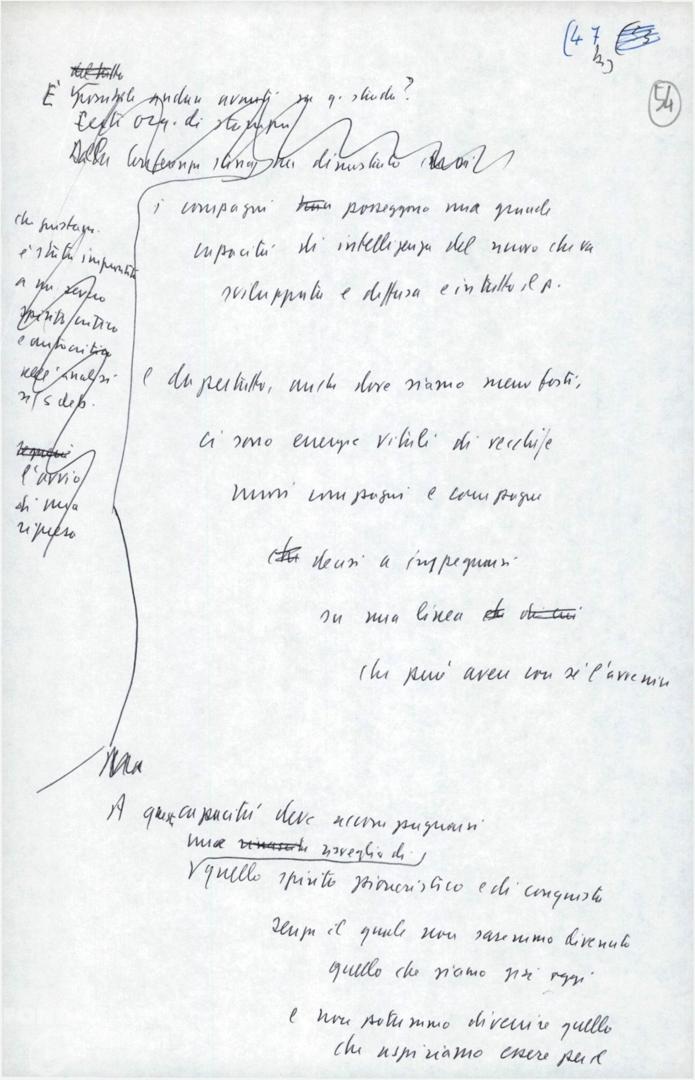 (47
b)
54
del tutto
È possibile andare avanti su q. strada?
Certo
Dalla Conferenza dimostrato
i compagni posseggono una grande
capacità di intelligenza del nuovo che va
sviluppata e diffusa e in tutto il p.
che
è stata improntata
a un
spirito critico
e autocritico
nell'analisi
l'avvio
di una
ripresa
e dapertutto, anche dove siamo meno forti,
ci sono energie vitali di vecchi e
nuovi compagni e compagne
che decisi a impegnarsi
su una linea
che può avere con sé l'avvenire
Ma
A questa capacità deve accompagnarsi
una rinascita risveglio di
quello spirito pionieristico e di conquista
senza il quale non saremmo divenuti
quello che siamo già oggi
e non potremmo divenire quello
che aspiriamo essere per il